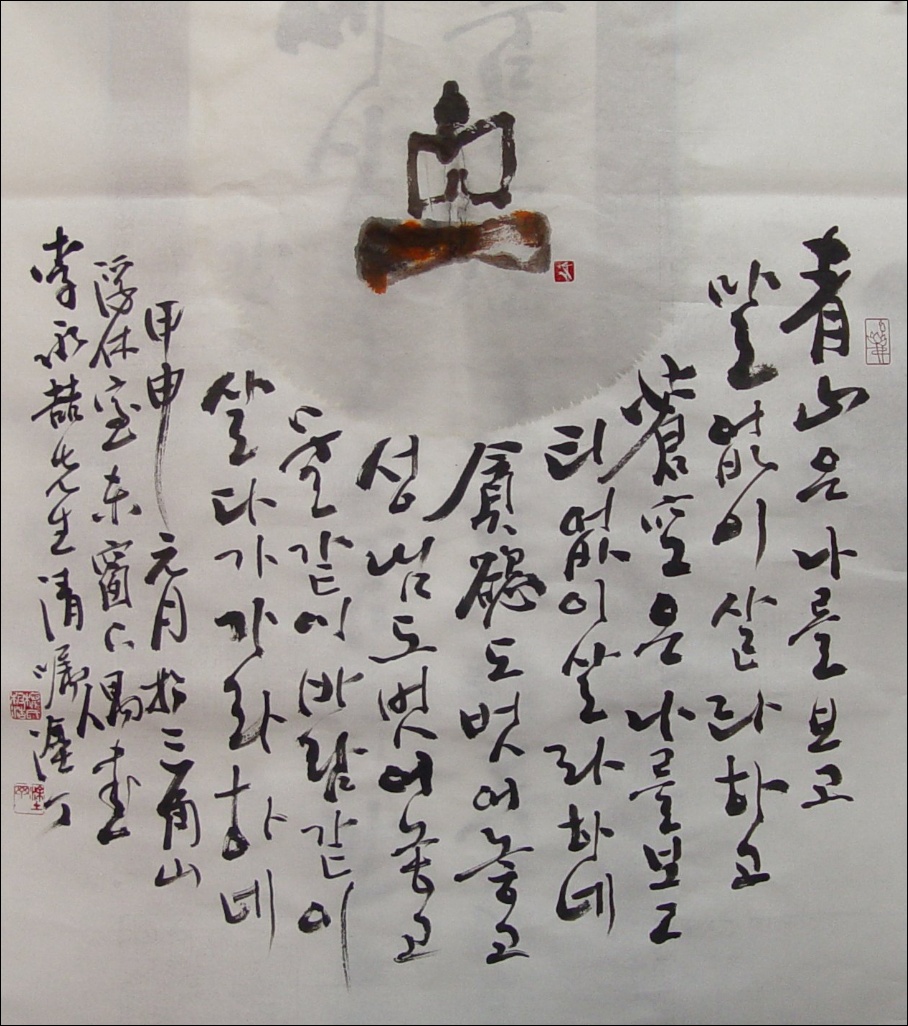 靑山은 나를 보고
말 없이 살라 하고
蒼空은 나를 보고
티 없이 살라 하네
貪慾도 벗어 놓고
성냄도 벗어 놓고
물 같이 바람 같이
살다가 가라 하네
甲申 元月 於 三角山
浮休室 東窗下 偶書
李永喆先生 清囑